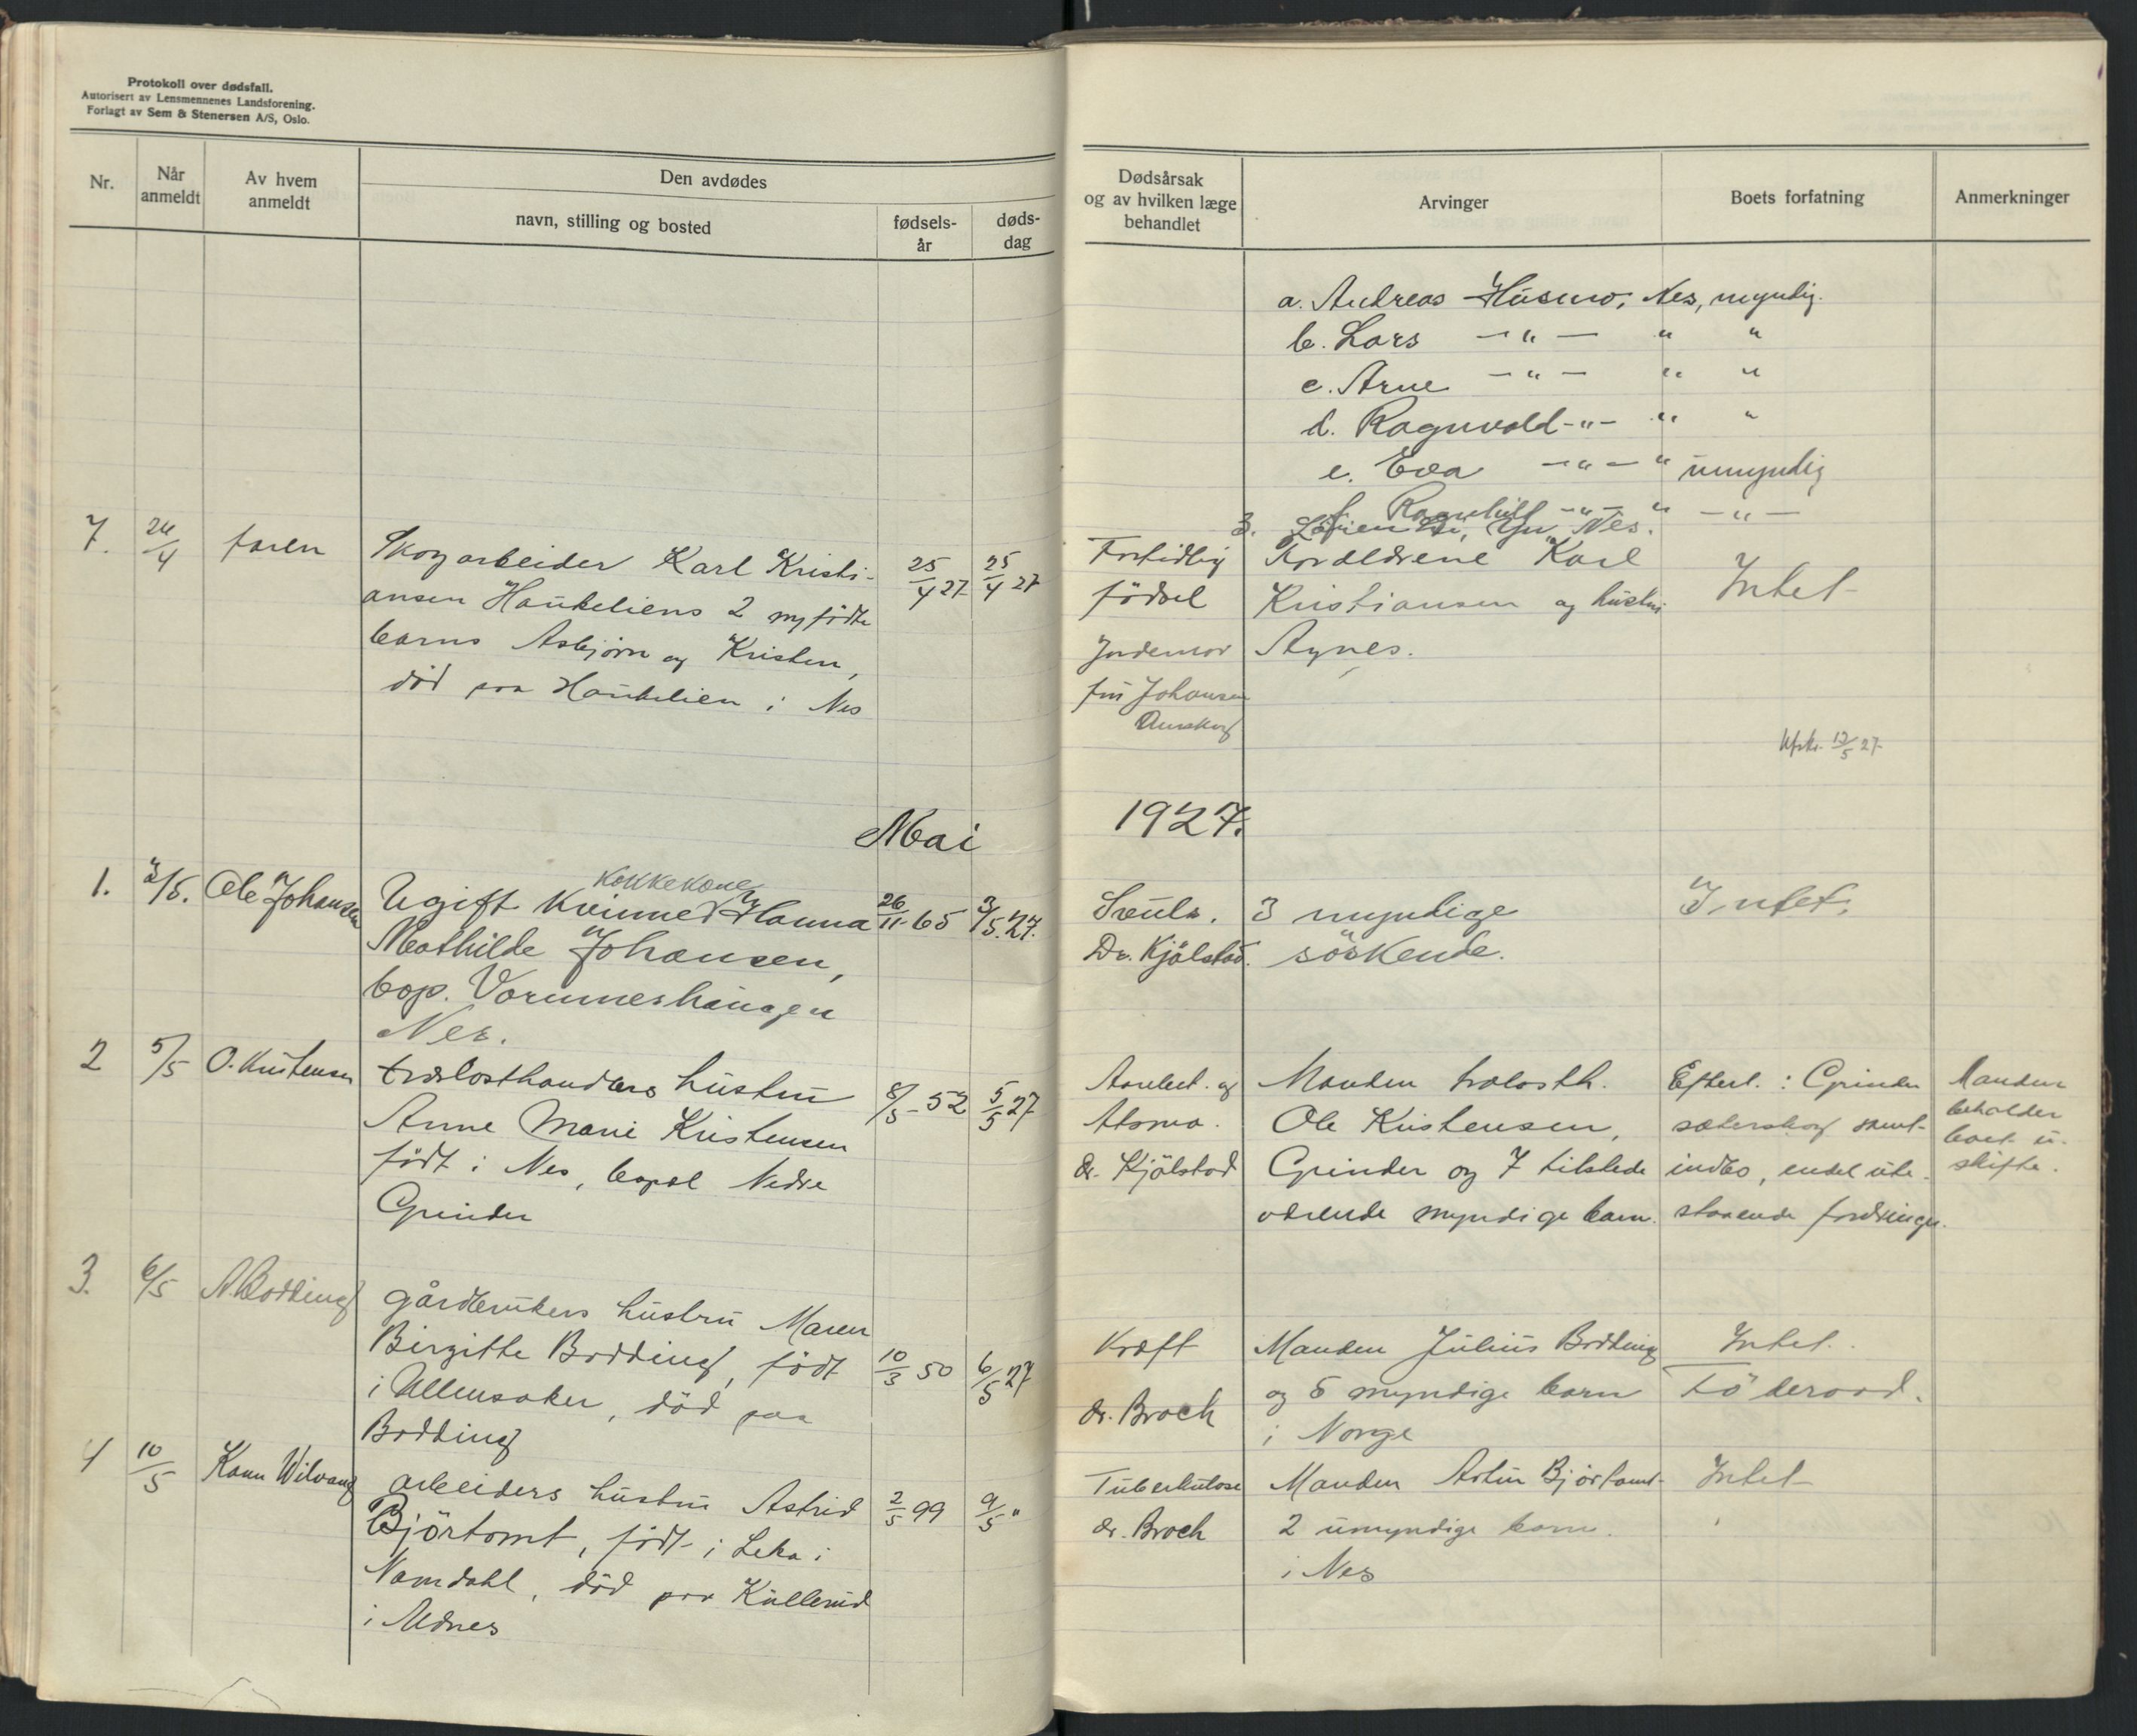 Protokoll over dødsfall.
Autorisert av Lensmennenes Landsforening.
Forlagt av Sem & Stenersen A/S, Oslo.
Nr.
Når
anmeldt
Av hvem
anmeldt
Den avdødes
navn, stilling og bosted
fødsels-
år
døds-
dag
7.
26/4
faren
Skogarbeider Karl Kristi-
ansen Haukeliens 2 nyfödte
barns Asbjørn og Kristen,
död paa Haukelien i Nes
25/4 27
25/4 27
Mai
1.
3/5.
Ole Johansen
kokkekone
Ugift kvinne Hanna
Mathilde Johansen,
bop. Vormneshaugen
Nes.
26/11-65
3/5.27.
2
5/5
O. Kristensen
trælasthandlers hustru
Anne Marie Kristensen
födt i Nes, bopæl Nedre
Grinder
8/5-52
5/5 27
3.
6/5
A. Bodding
gårdbrukers hustru Maren
Birgitte Bodding, födt
i Ullensaker, död paa
Bodding
10/3 50
6/5 27
4
10/5
Kaun Wilvang
arbeiders hustru Astrid
Björtomt, födt i Leka i
Namdahl, död paa Kullerud
i Udnes
2/5 99
9/5 "
Dødsårsak
og av hvilken læge
behandlet
Arvinger
Boets forfatning
Anmerkninger
a. Andreas Husmo, Nes, myndig.
b. Lars -"- " "
c. Arne -"- " "
d. Ragnvald -"- " "
e. Eva -"- " umyndig
f. Ragnhild -"- " -"-
3. Nes.
Fortidlig
födsel
Jordmor
fru Johansen
Aurskog
Foreldrene Karl
Kristiansen og hustru
Agnes.
Intet
Utskr. 12/5 27
1927.
Dr. Kjölstad.
3 myndige
söskende.
Intet.
Aarebet. og
Atsma.
dr. Kjölstad
Manden trælasth.
Ole Kristensen,
Grinder og 7 tilstede
værende myndige barn.
Efterl.: Grinder
sæterskog samt
indbo, endel ute-
staaende fordringer.
Manden
beholder
boet u.
skifte.
Kræft
dr. Broch
Manden Julius Bodding
og 5 myndige barn
i Norge
Intet.
Föderaad.
Tuberkulose
dr. Broch
Manden Artur Björtomt
2 umyndige barn.
i Nes
Intet